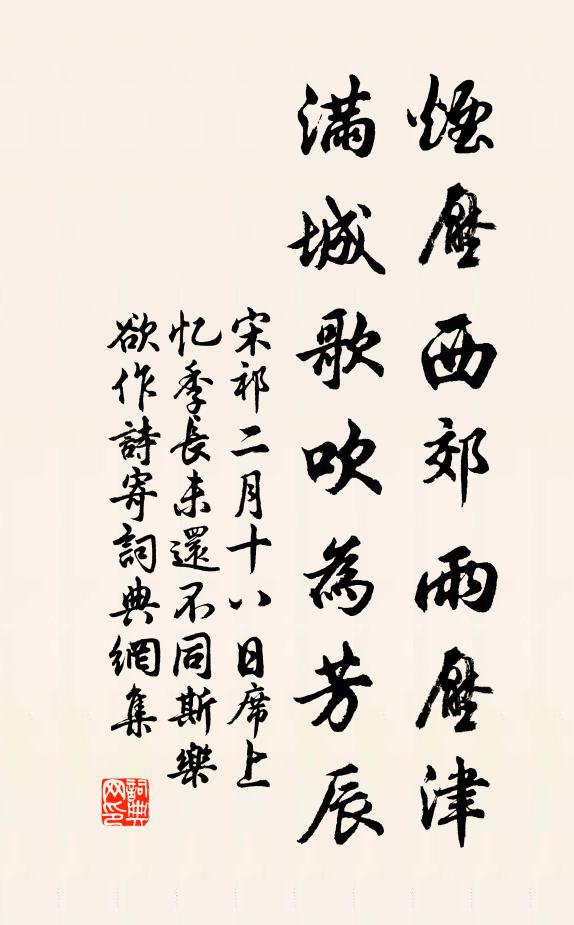 煙壓西郊雨壓津
滿城歌吹為芳辰
宋祁二月十八日席上
忆季長未還不同斯樂
欲作詩寄詞典網集
詞典网印